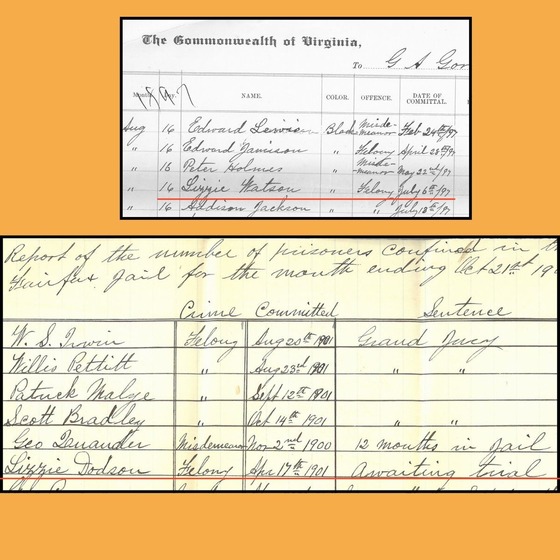 The Commonwealth of Virginia,
To G A Gor
Month. Day. NAME. COLOR. OFFENCE. DATE OF COMMITTAL.
1897
Aug 16 Edward Black Misde-meanor Feb 24th/97
" 16 Edward Jamison " Felony April 28th/97
" 16 Peter Holmes " Misde-meanor May 22d/97
" 16 Lizzie Watson " Felony July 6th/97
" 16 Addison Jackson " " July 13th/97
Report of the number of prisoners confined in th
Fairfax Jail for the month ending Oct 21st 190
Crime Committed Sentence
W. S. Irwin Felony Aug 20th 1901 Grand Jury
Willis Pettitt " Aug 23rd 1901 " "
Patrick " Sept 12th 1901
Scott Bradley " Oct 14th 1901 " "
Geo Misdemeanor Nov 2nd 1900 12 months in Jail
Lizzie Dodson Felony Apr 17th 1901 Awaiting trial